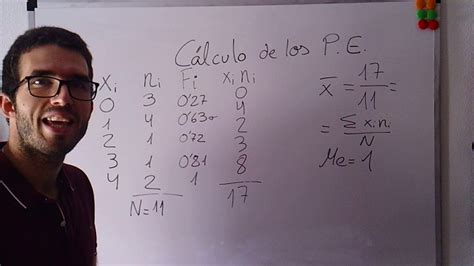 Cálculo de los P.E.
xi ni Fi xini
0 3 0'27 0
1 4 0'63 4
2 1 0'72 2
3 1 0'81 3
4 2 1 8
N=11 17
x̄ = 17/11 =
= Σxini/N
Me=1